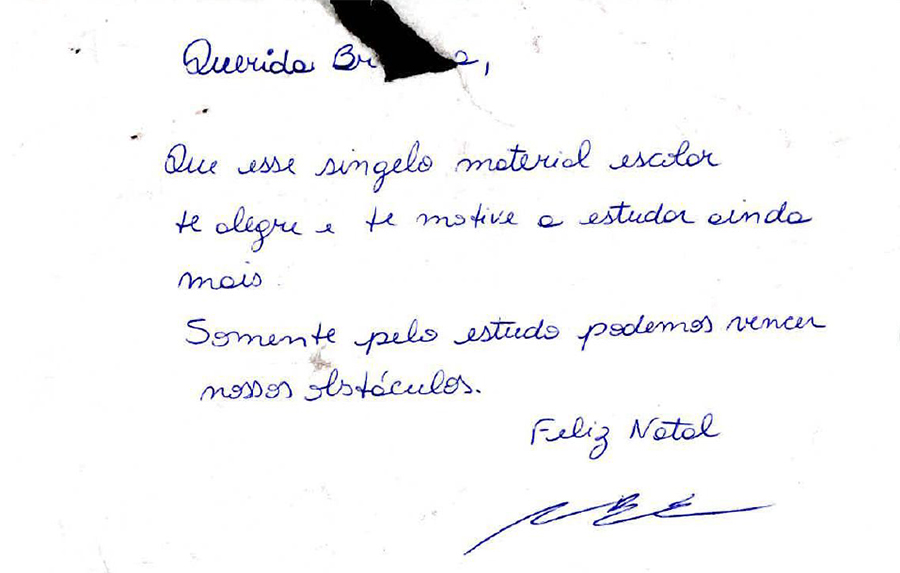 Querida
Que esse singelo material escolar
te alegre e te motive a estudar ainda
mais.
Somente pelo estudo podemos vencer
nossos obstáculos.
Feliz Natal